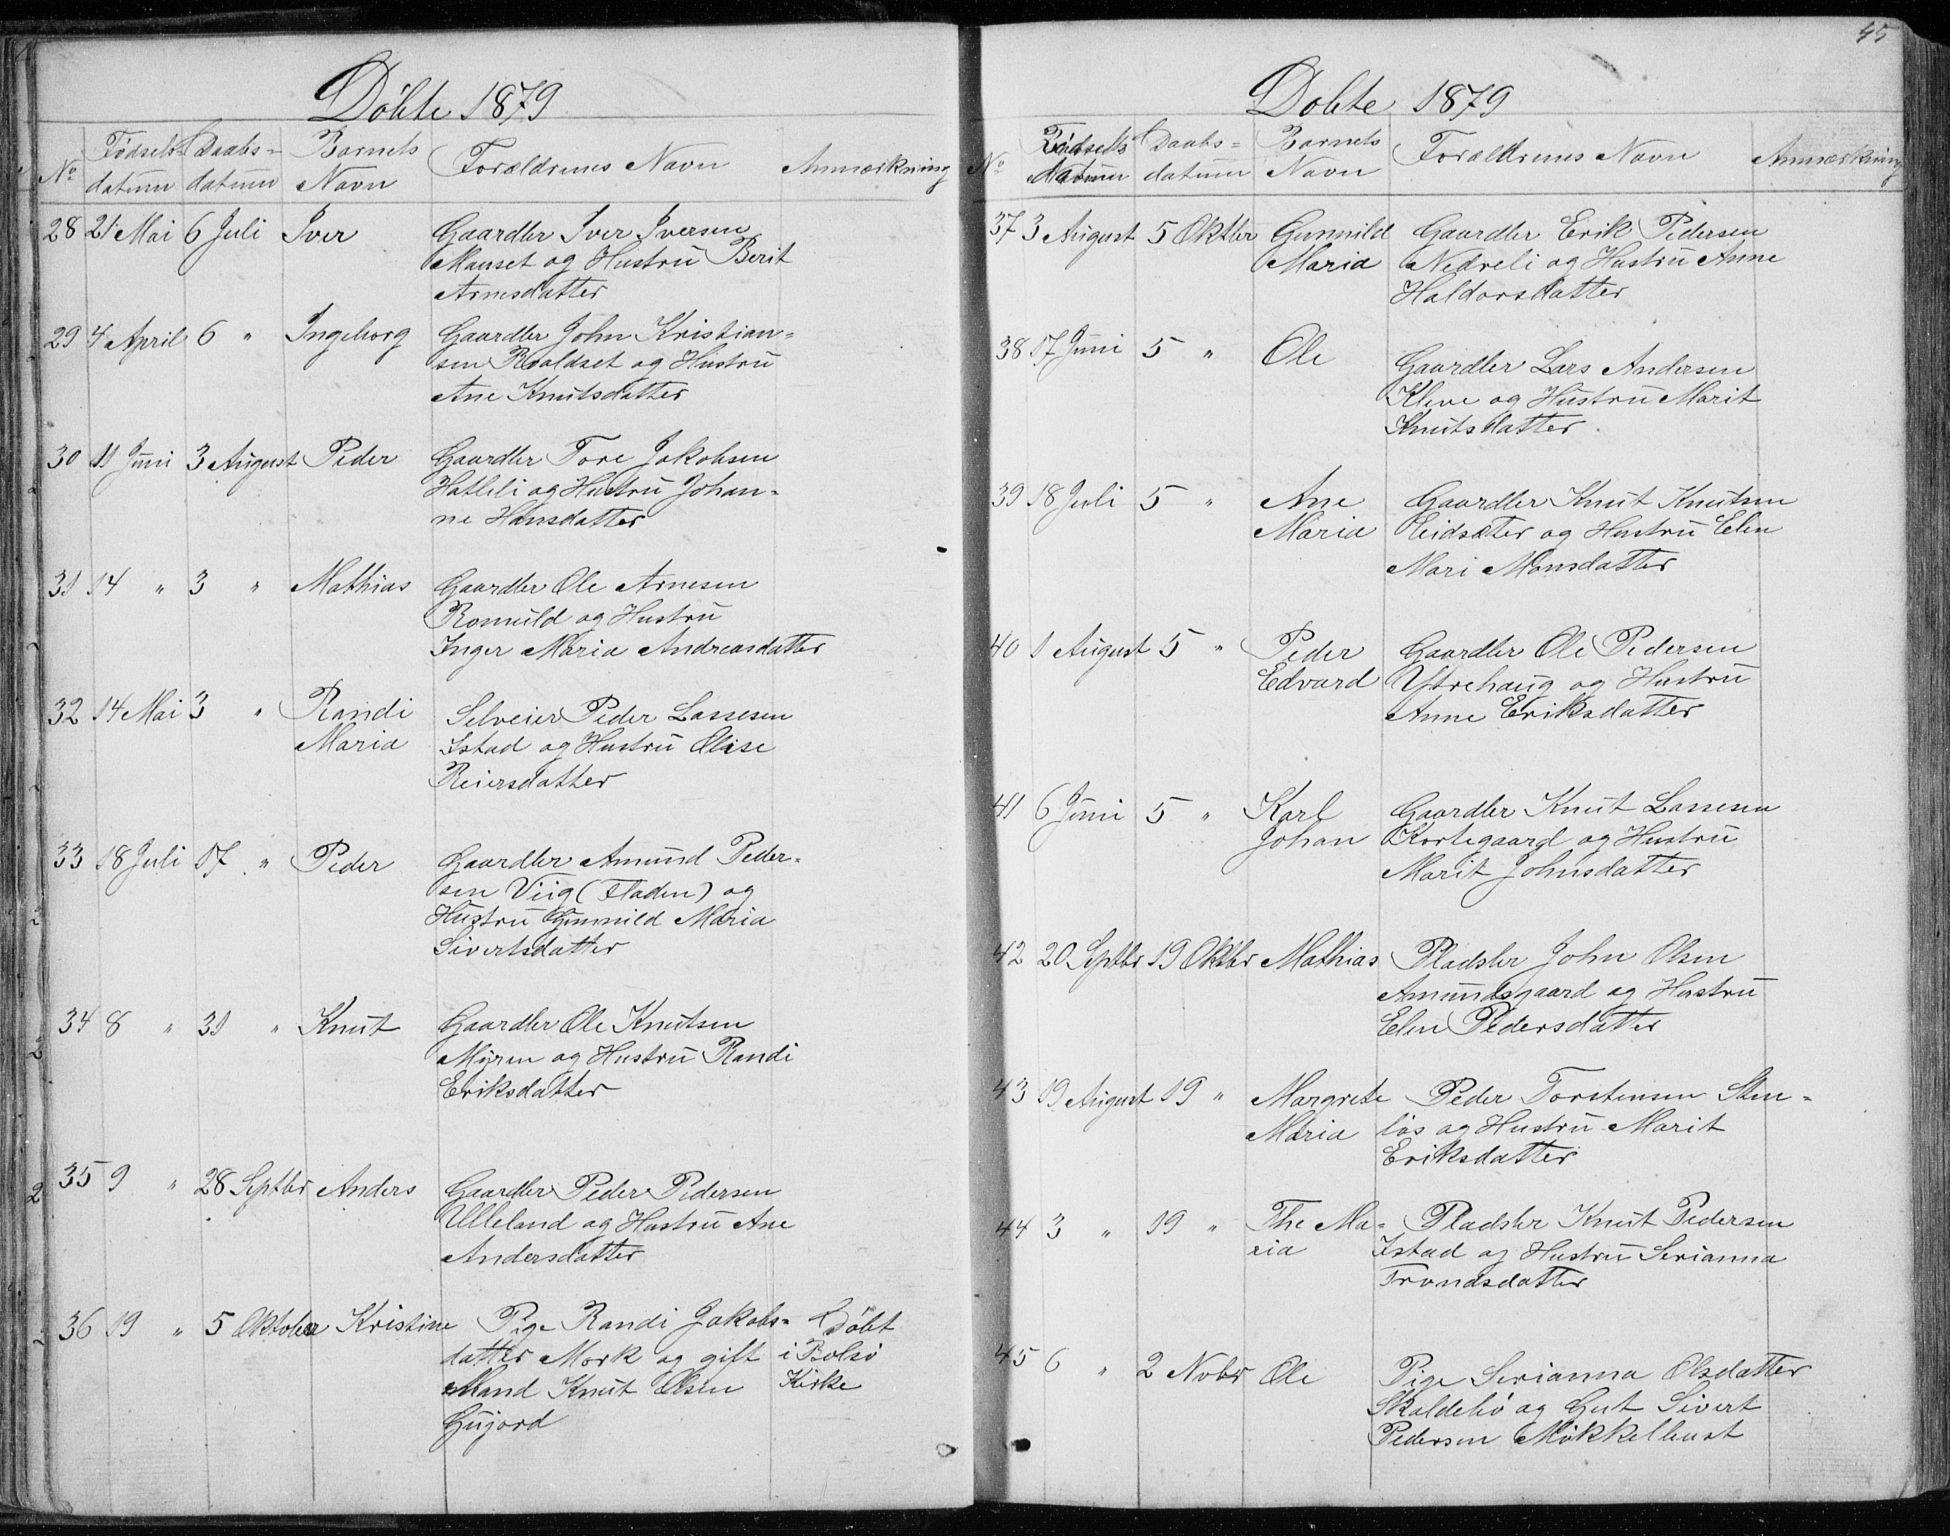 Döbte 1879
No Fødsels- Daabs- Barnets Forældrenes Navn Anmærkning
datum datum Navn
28 21 Mai 6 Juli Iver Gaardbr Iver Iversen
Mauset og Hustru Berit
Arnesdatter
29 4 April 6 " Ingeborg Gaardbr John Kristian-
sen Roaldset og Hustru
Ane Knutsdatter
30 11 Juni 3 August Peder Gaardbr Tore Jakobsen
Hatleli og Hustru Johan-
ne Hansdatter
31 14 " 3 " Mathias Gaardbr Ole Arnesen
Romuld og Hustru
Inger Maria Andreasdatter
32 14 Mai 3 " Randi Selveier Peder Lassesen
Maria Istad og Hustru Olise
Reiersdatter
33 18 Juli 17 " Peder Gaardbr Amund Peder-
sen Viig (Fladen) og
Hustru Gunnild Maria
Sivertsdatter
34 8 " 31 " Knut Gaardbr Ole Knutsen
Myren og Hustru Randi
Eriksdatter
35 9 " 28 Septbr Anders Gaardbr Peder Pedersen
Ulleland og Hustru Ane
Andersdatter
36 19 " 5 Oktober Kristine Pige Randi Jakobs- Döbt
datter Mork og gift i Bolsö
Mand Knut Olsen Kirke
Gujord
45
Dobte 1879
No Fødsels Daabs- Barnets Forældrenes Navn Anmærkning
datum datum Navn
37 3 August 5 Oktbr Gunnild Gaardbr Erik Pedersen
Maria Nedreli og Hustru Anne
Haldorsdatter
38 17 Juni 5 " Ole Gaardbr Lars Andersen
Kleve og Hustru Marit
Knutsdatter.
39 18 Juli 5 " Ane Gaardbr Knut Knutsen
Maria Eidsæter og Hustru Elen
Mari Monsdatter
40 1 August 5 " Peder Gaardbr Ole Pedersen
Edvard Ytrehaug og Hustru
Anne Eriksdatter
41 6 Juni 5 " Karl Gaardbr Knut Lassesen
Johan Kortegaard og Hustru
Marit Johnsdatter
42 20 Septbr 19 Oktbr Mathias Pladsbr John Olsen
Amundsgaard og Hustru
Elen Pedersdatter
43 19 August 19 " Margrete Peder Torstensen Sten-
Maria lös og Hustru Marit
Eriksdatter
44 3 " 19 " The Ma- Pladsbr Knut Pedersen
ria Istad og Hustru Serianna
Trondsdatter
45 6 " 2 Novbr Ole Pige Serianna Olsdatter
Skaldebö og Gut Sivert
Pedersen Mökkelbust